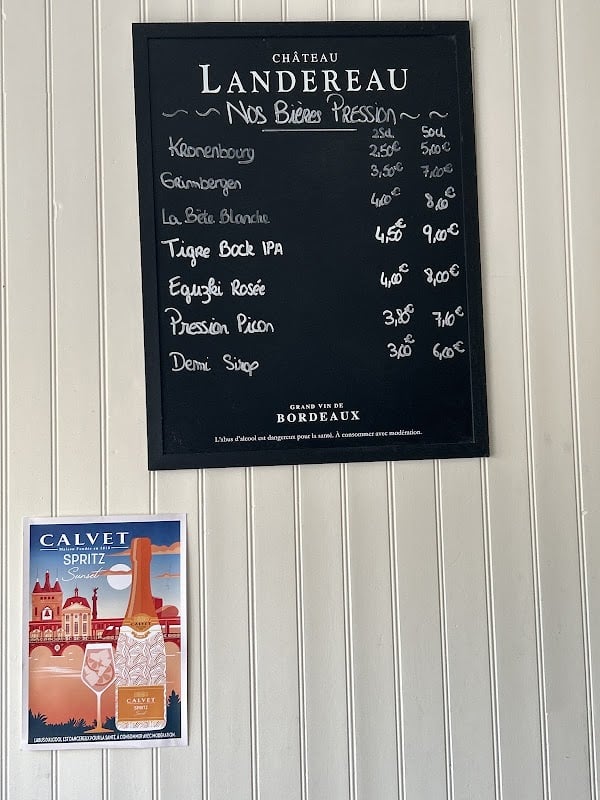 CHÂTEAU
LANDEREAU
~ ~ Nos Bières Pression ~ ~
25cl 50cl
Kronenbourg 2,50€ 5,00€
Grimbergen 3,50€ 7,00€
La Bête Blanche 4,00€ 8,00€
Tigre Bock IPA 4,50€ 9,00€
Eguzki Rosée 4,00€ 8,00€
Pression Picon 3,80€ 7,60€
Demi Sirop 3,00€ 6,00€
GRAND VIN DE
BORDEAUX
L'abus d'alcool est dangereux pour la santé. À consommer avec modération.
CALVET
Maison Fondée en 1818
SPRITZ
Sunset
CALVET
SPRITZ
Sunset
L'ABUS D'ALCOOL EST DANGEREUX POUR LA SANTÉ, À CONSOMMER AVEC MODÉRATION.